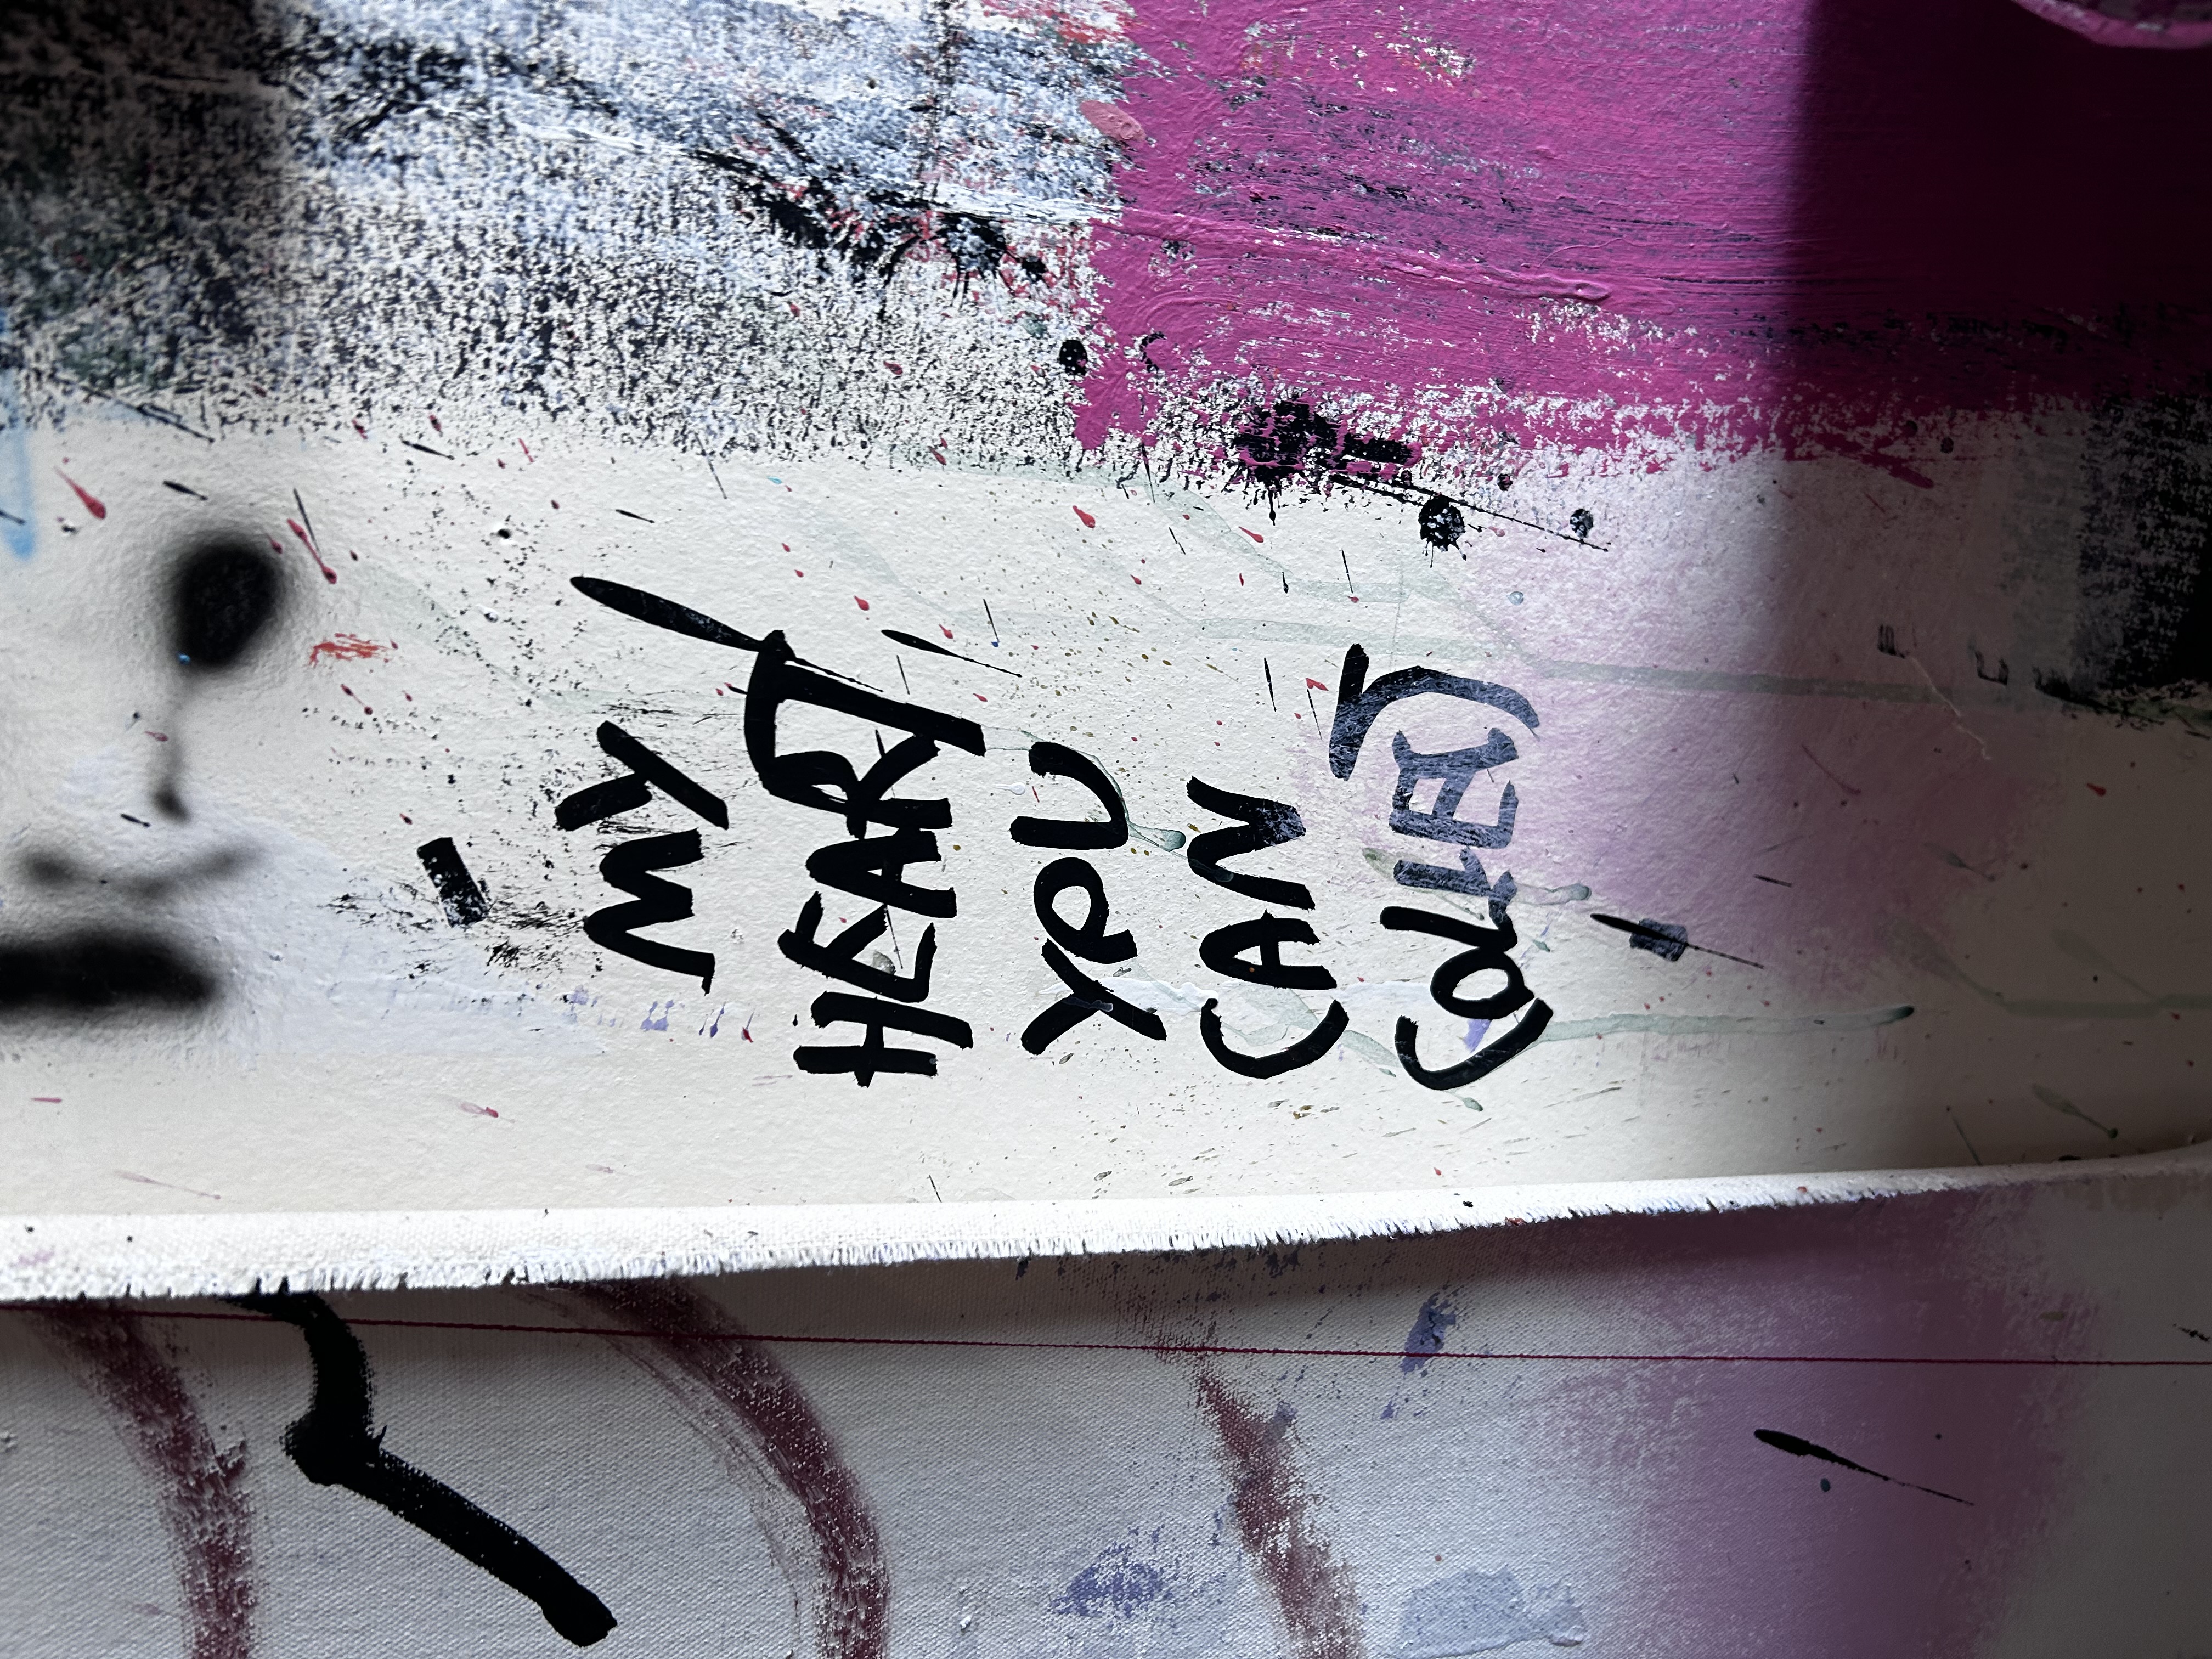 MY
HEART
YOU
CAN
COLLECT